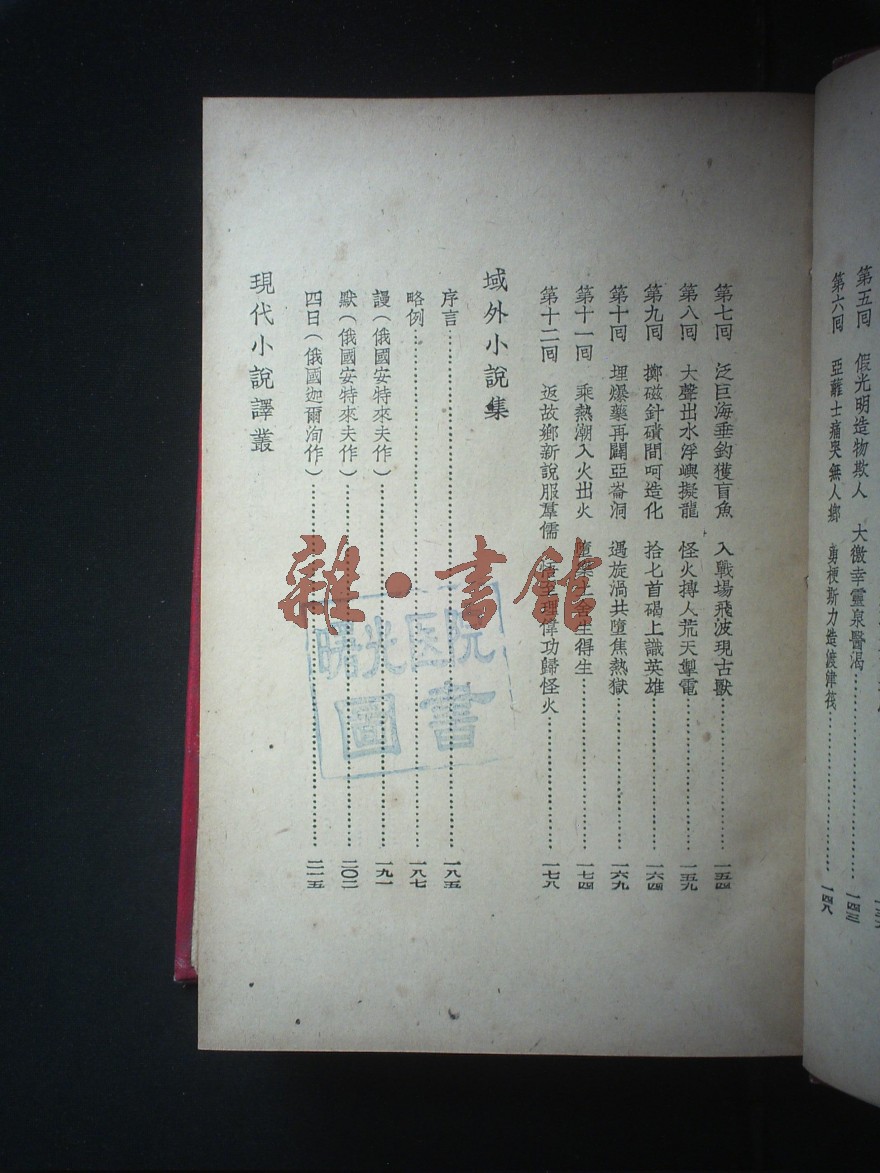 第五回　假光明造物欺人　大徼幸靈泉醫渴……一四三
第六回　亞蘺士痛哭無人鄉　勇梗斯力造渡津筏……一四八
第七回　泛巨海垂釣獲盲魚　入戰場飛波現古獸……一五四
第八回　大聲出水浮嶼擬龍　怪火搏人荒天掣電……一五九
第九回　擲磁針碛間呵造化　拾匕首碣上識英雄……一六四
第十回　埋爆藥再闢亞崙洞　遇旋渦共墮焦熱獄……一六九
第十一回　乘熱潮入火出火　墮樂土舍生得生……一七四
第十二回　返故鄉新說服羣儒　悟至理偉功歸怪火……一七八
域外小說集
序言……一八五
略例……一八七
謾（俄國安特來夫作）……一九一
默（俄國安特來夫作）……二〇二
四日（俄國迦爾洵作）……二一五
現代小說譯叢
雜·書館
曙光医院
圖書